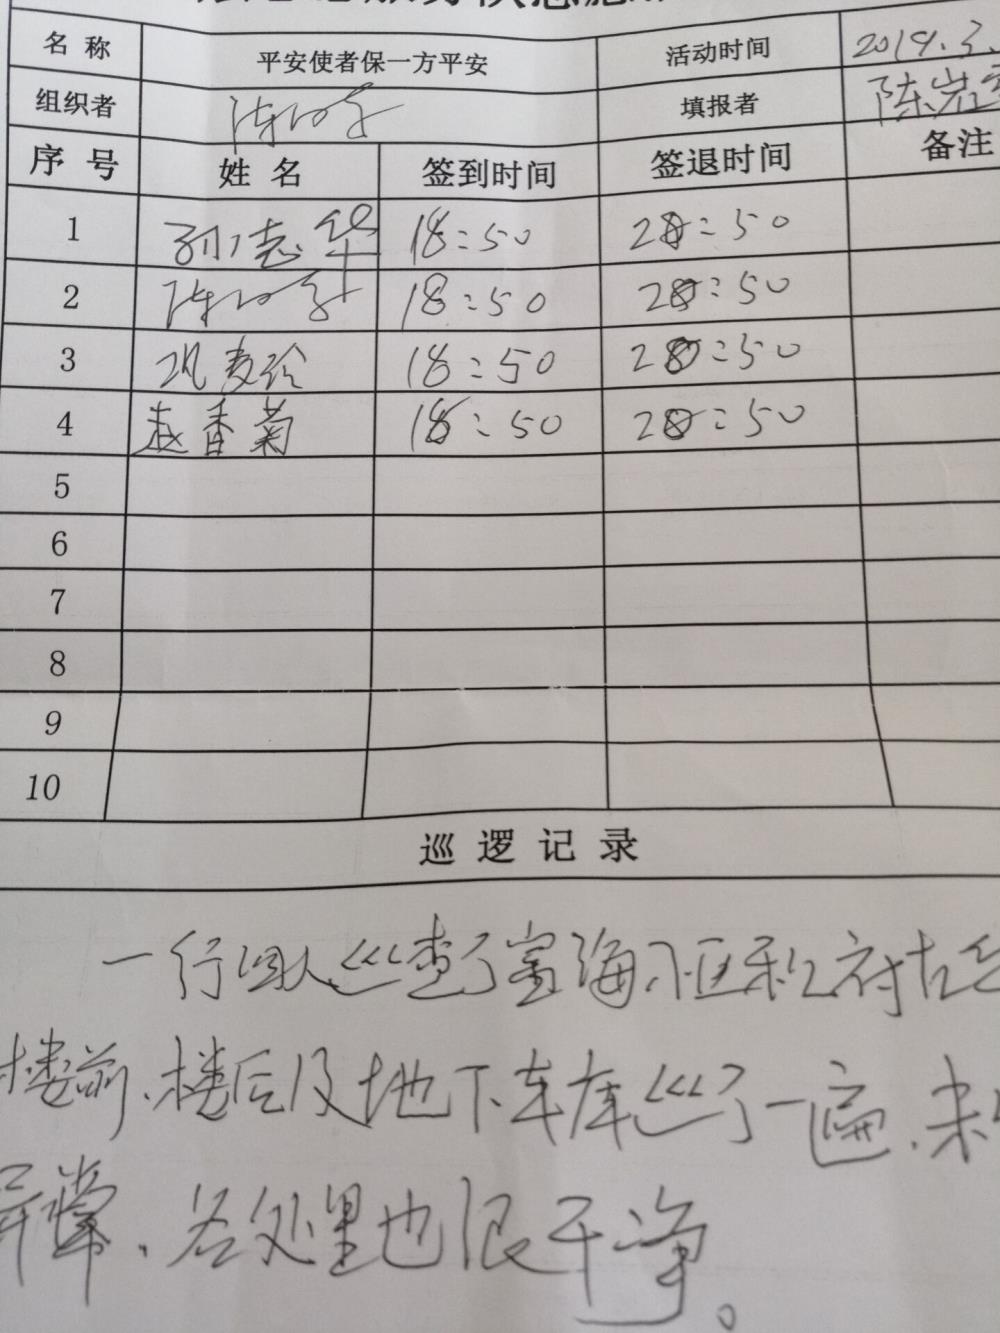 名称 平安使者保一方平安 活动时间 2019.3.
组织者 填报者 陈岩
序号 姓名 签到时间 签退时间 备注
1 孙志华 18:50 28:50
2 18:50 28:50
3 巩麦玲 18:50 28:50
4 赵香菊 18:50 28:50
5
6
7
8
9
10
巡逻记录
一行四人巡查了富海小区和
楼前、楼后及地下车库巡了一遍,未
异常,各处里也很干净。